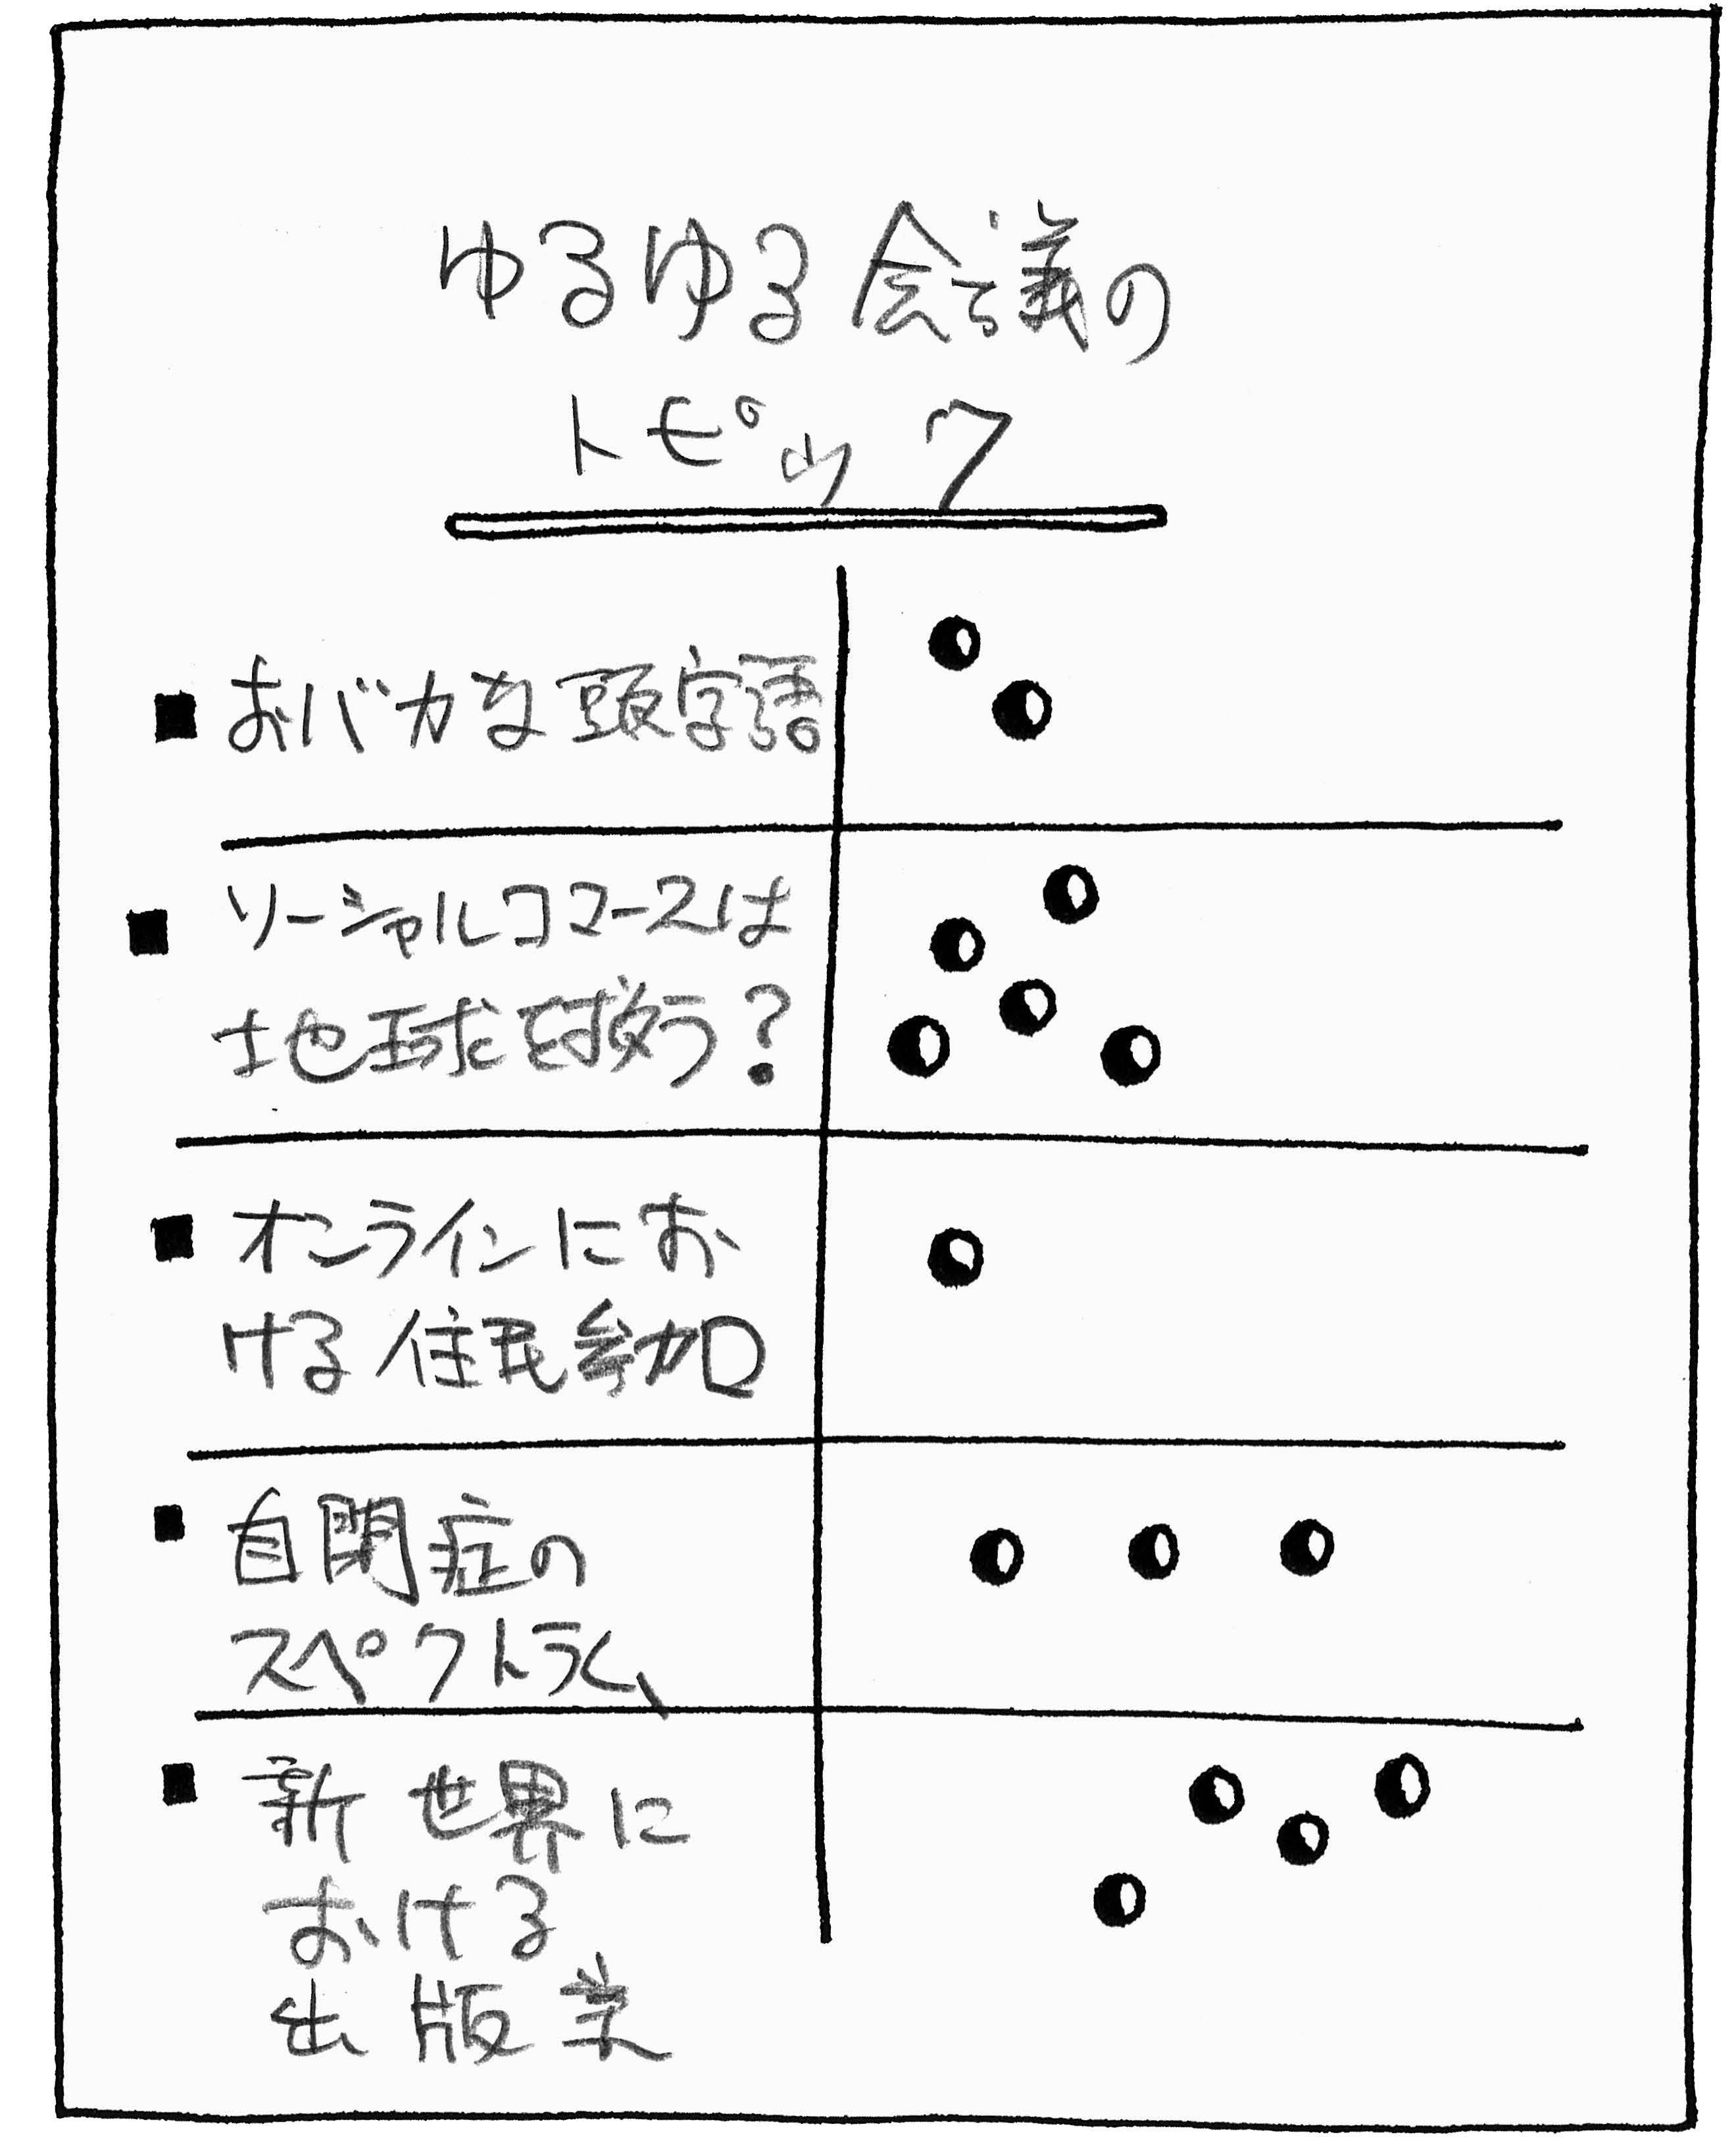 ゆるゆる会議の
トピック
おバカな頭字語
ソーシャルコマースは
地球を救う？
オンラインにお
ける住民参加
自閉症の
スペクトラム
新世界に
おける
出版業